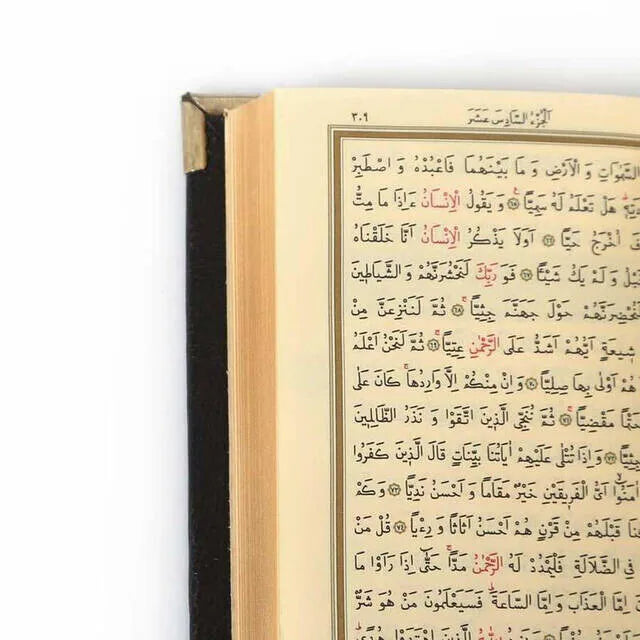 الجزء السادس عشر ٣٠٩
السَّمٰوَاتِ وَ الْاَرْضِ وَ مَا بَيْنَهُمَا فَاعْبُدْهُ وَ اصْطَبِرْ
هَلْ تَعْلَمُ لَهُ سَمِيًّا ﴿٦٥﴾ وَ يَقُولُ الْاِنْسَانُ ءَاِذَا مَا مِتُّ
اُخْرَجُ حَيًّا ﴿٦٦﴾ اَوَلَا يَذْكُرُ الْاِنْسَانُ اَنَّا خَلَقْنَاهُ
وَ لَمْ يَكُ شَيْئًا ﴿٦٧﴾ فَوَ رَبِّكَ لَنَحْشُرَنَّهُمْ وَ الشَّيَاطِينَ
لَنُحْضِرَنَّهُمْ حَوْلَ جَهَنَّمَ جِثِيًّا ﴿٦٨﴾ ثُمَّ لَنَنْزِعَنَّ مِنْ
شِيعَةٍ اَيُّهُمْ اَشَدُّ عَلَى الرَّحْمٰنِ عِتِيًّا ﴿٦٩﴾ ثُمَّ لَنَحْنُ اَعْلَمُ
هُمْ اَوْلٰى بِهَا صِلِيًّا ﴿٧٠﴾ وَ اِنْ مِنْكُمْ اِلَّا وَارِدُهَا كَانَ عَلٰى
حَتْمًا مَقْضِيًّا ﴿٧١﴾ ثُمَّ نُنَجِّى الَّذِينَ اتَّقَوْا وَ نَذَرُ الظَّالِمِينَ
جِثِيًّا ﴿٧٢﴾ وَ اِذَا تُتْلٰى عَلَيْهِمْ اٰيَاتُنَا بَيِّنَاتٍ قَالَ الَّذِينَ كَفَرُوا
اٰمَنُوا اَىُّ الْفَرِيقَيْنِ خَيْرٌ مَقَامًا وَ اَحْسَنُ نَدِيًّا ﴿٧٣﴾ وَ كَمْ
قَبْلَهُمْ مِنْ قَرْنٍ هُمْ اَحْسَنُ اَثَاثًا وَ رِءْيًا ﴿٧٤﴾ قُلْ مَنْ
فِى الضَّلَالَةِ فَلْيَمْدُدْ لَهُ الرَّحْمٰنُ مَدًّا حَتّٰى اِذَا رَاَوْا مَا
اِمَّا الْعَذَابَ وَ اِمَّا السَّاعَةَ فَسَيَعْلَمُونَ مَنْ هُوَ شَرٌّ